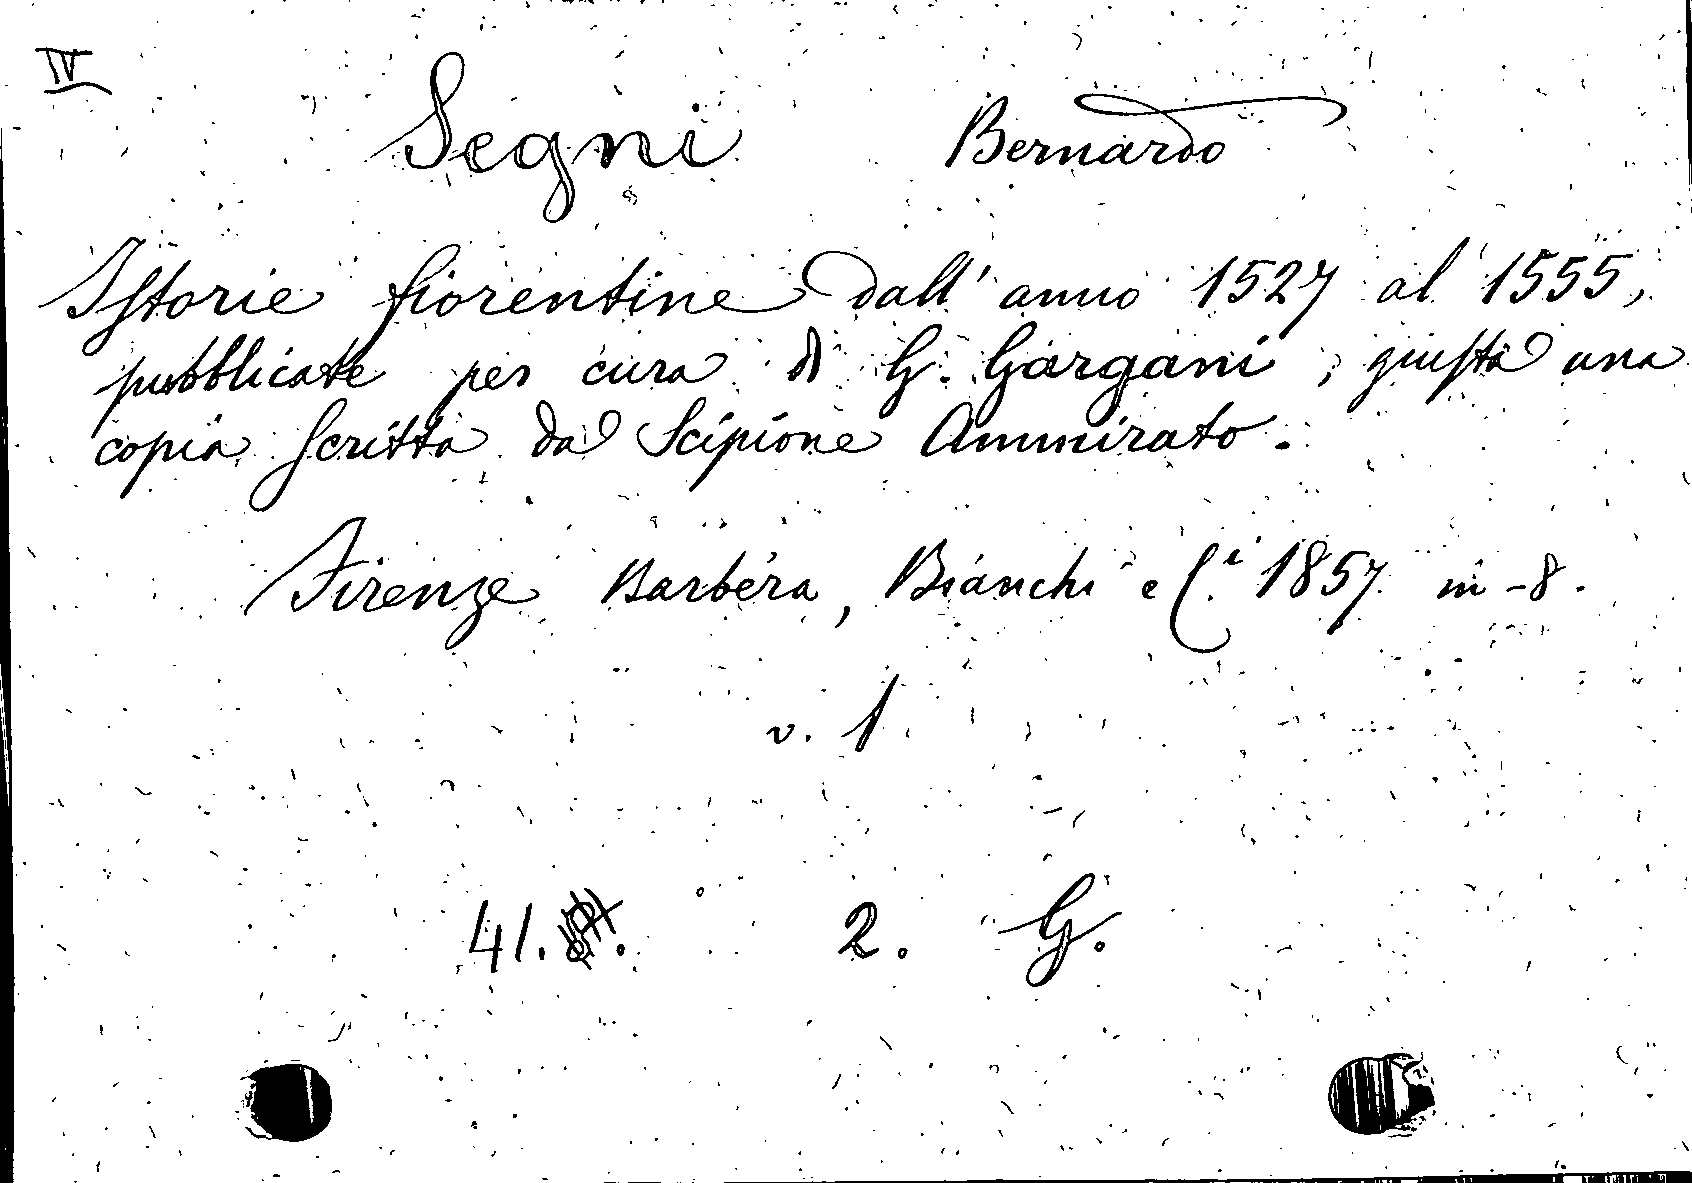 IV
Segni Bernardo
Istorie fiorentine dall' anno 1527 al 1555,
pubblicate per cura di G. Gargani, giusta una
copia scritta da Scipione Ammirato.
Firenze Barbèra, Bianchi e C.i 1857 in-8.
v. 1.
41. 2. G.